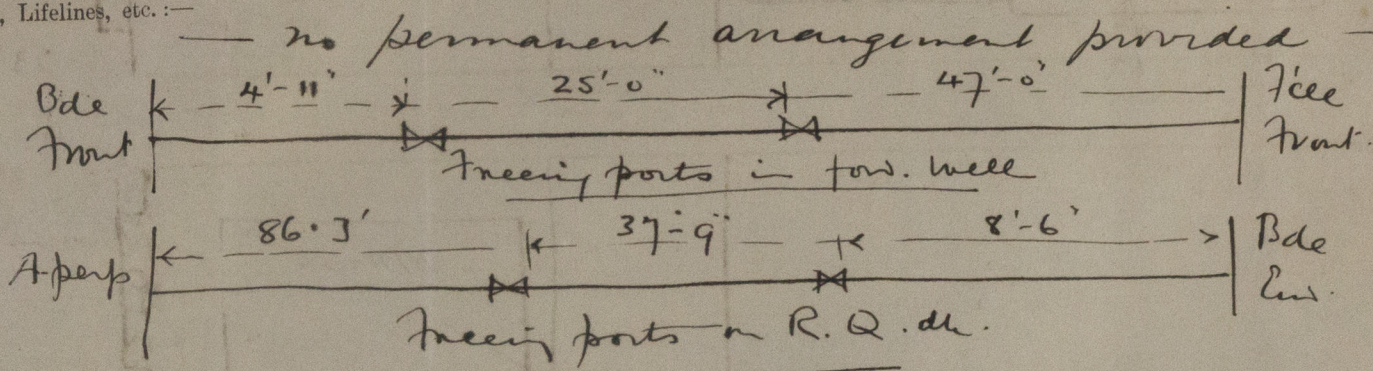 , Lifelines, etc. :—
— no permanent arrangement provided —
Bde Front 4'-11" 25'-0" 47'-0" F'cle Front.
Freeing ports in forw. well
A. perp 86.3' 37'-9" 8'-6" Bde End.
Freeing ports on R. Q. dk.